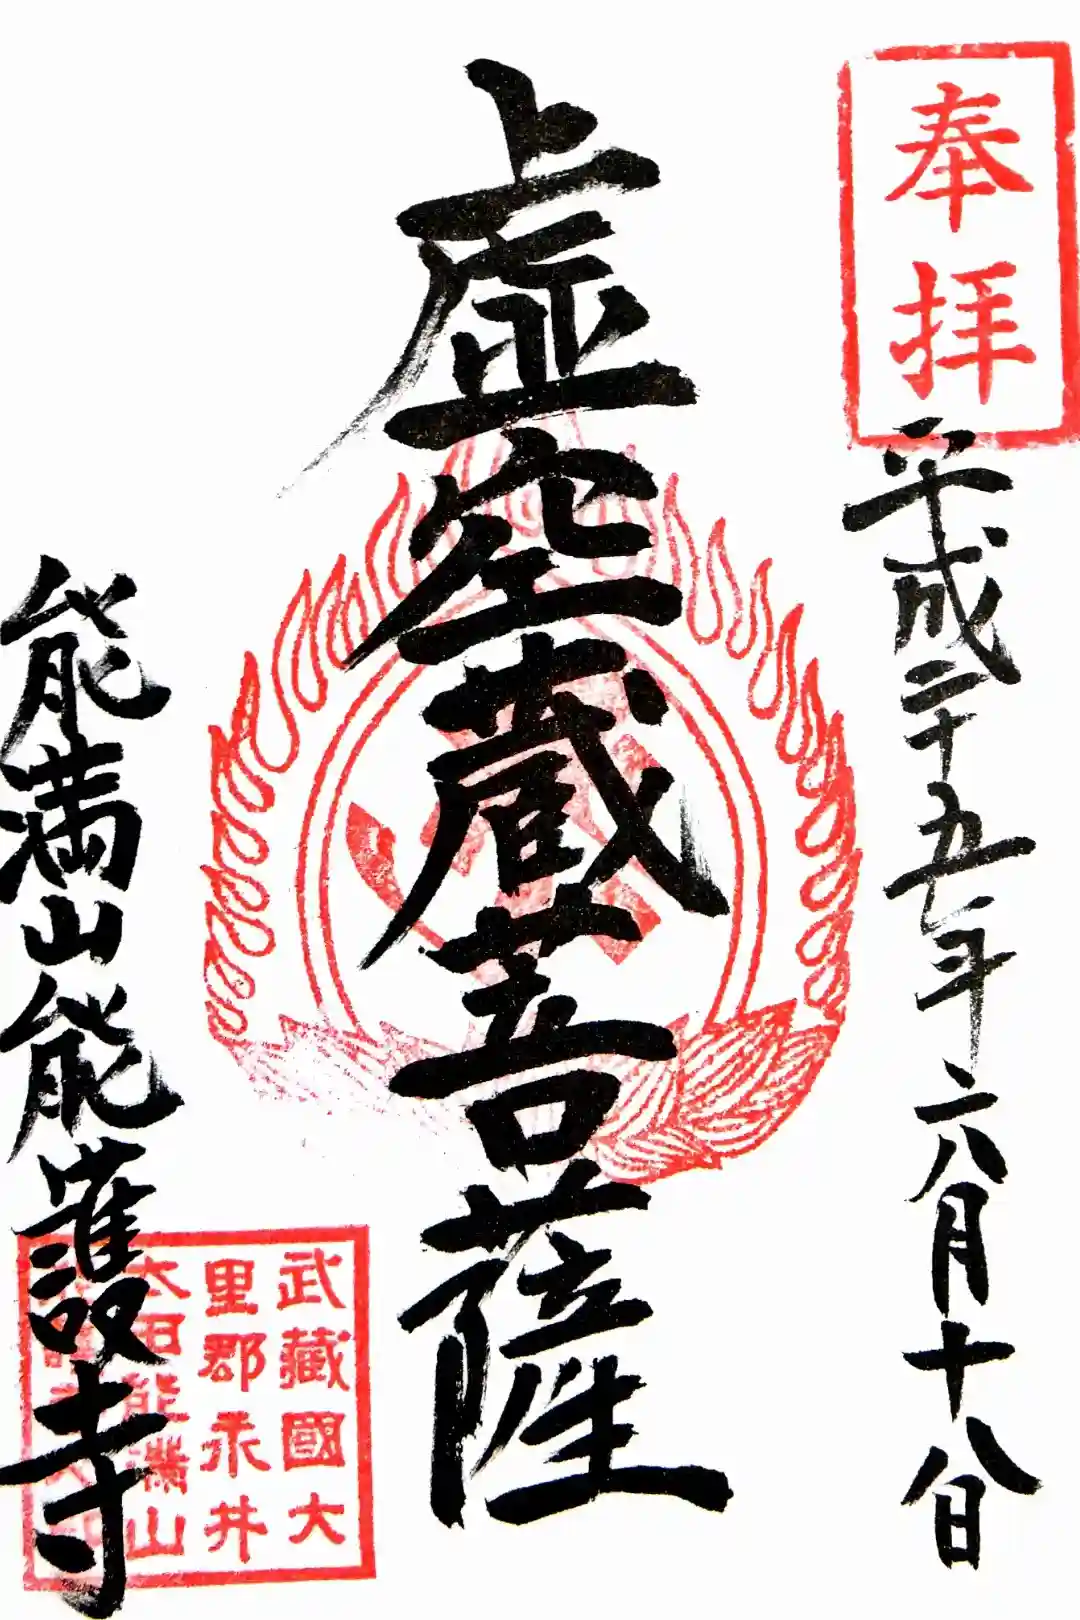 奉拝
平成二十五年六月十八日
虚空蔵菩薩
能満山能護寺
武藏國大
里郡永井
太田能満山